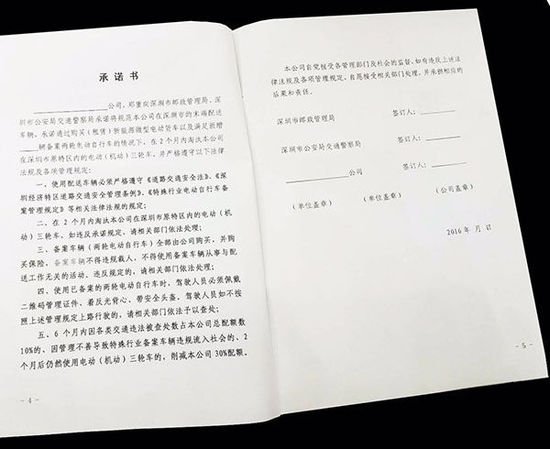 承诺书
____________公司，郑重向深圳市邮政管理局、深
圳市公安局交通警察局承诺将规范本公司在深圳市的末端配送
车辆，承诺通过购买（租赁）新能源微型电动货车以及满足新增
____辆备案两轮电动自行车的情况下，在 2 个月内淘汰本公司
在深圳市原特区内的电动（机动）三轮车，并严格遵守以下法律
法规及各项管理规定：
一、使用配送车辆必须严格遵守《道路交通安全法》、《深
圳经济特区道路交通安全管理条例》、《特殊行业电动自行车备
案管理规定》等相关法律法规的规定；
二、在 2 个月内淘汰本公司在深圳市原特区内的电动（机
动）三轮车，如违反承诺规定，请相关部门依法处理；
三、备案车辆（两轮电动自行车）全部由公司购买，并购
买保险，备案车辆不得违规载人，不得使用备案车辆从事与配
送工作无关的活动，违反规定的，请相关部门依法处理；
四、使用已备案的两轮电动自行车时，驾驶人员必须佩戴
二维码管理证件、着反光背心、带安全头盔，驾驶人员如不按
照上述管理规定上路行驶的，请相关部门依法予以查处；
五、6 个月内因各类交通违法被查处数占本公司总配额数
10%的、因管理不善导致特殊行业备案车辆违规流入社会的、2
个月后仍然使用电动（机动）三轮车的，削减本公司 30%配额。
- 4 -
本公司自觉接受各管理部门及社会的监督，如有违反上述法
律法规及各项管理规定，自愿接受相关部门处理，并承担相应的
后果和责任。
深圳市邮政管理局 签订人：________
深圳市公安局交通警察局 签订人：________
____________公司 签订人：________
（单位盖章） （单位盖章） （公司盖章）
2016 年 月 日
- 5 -